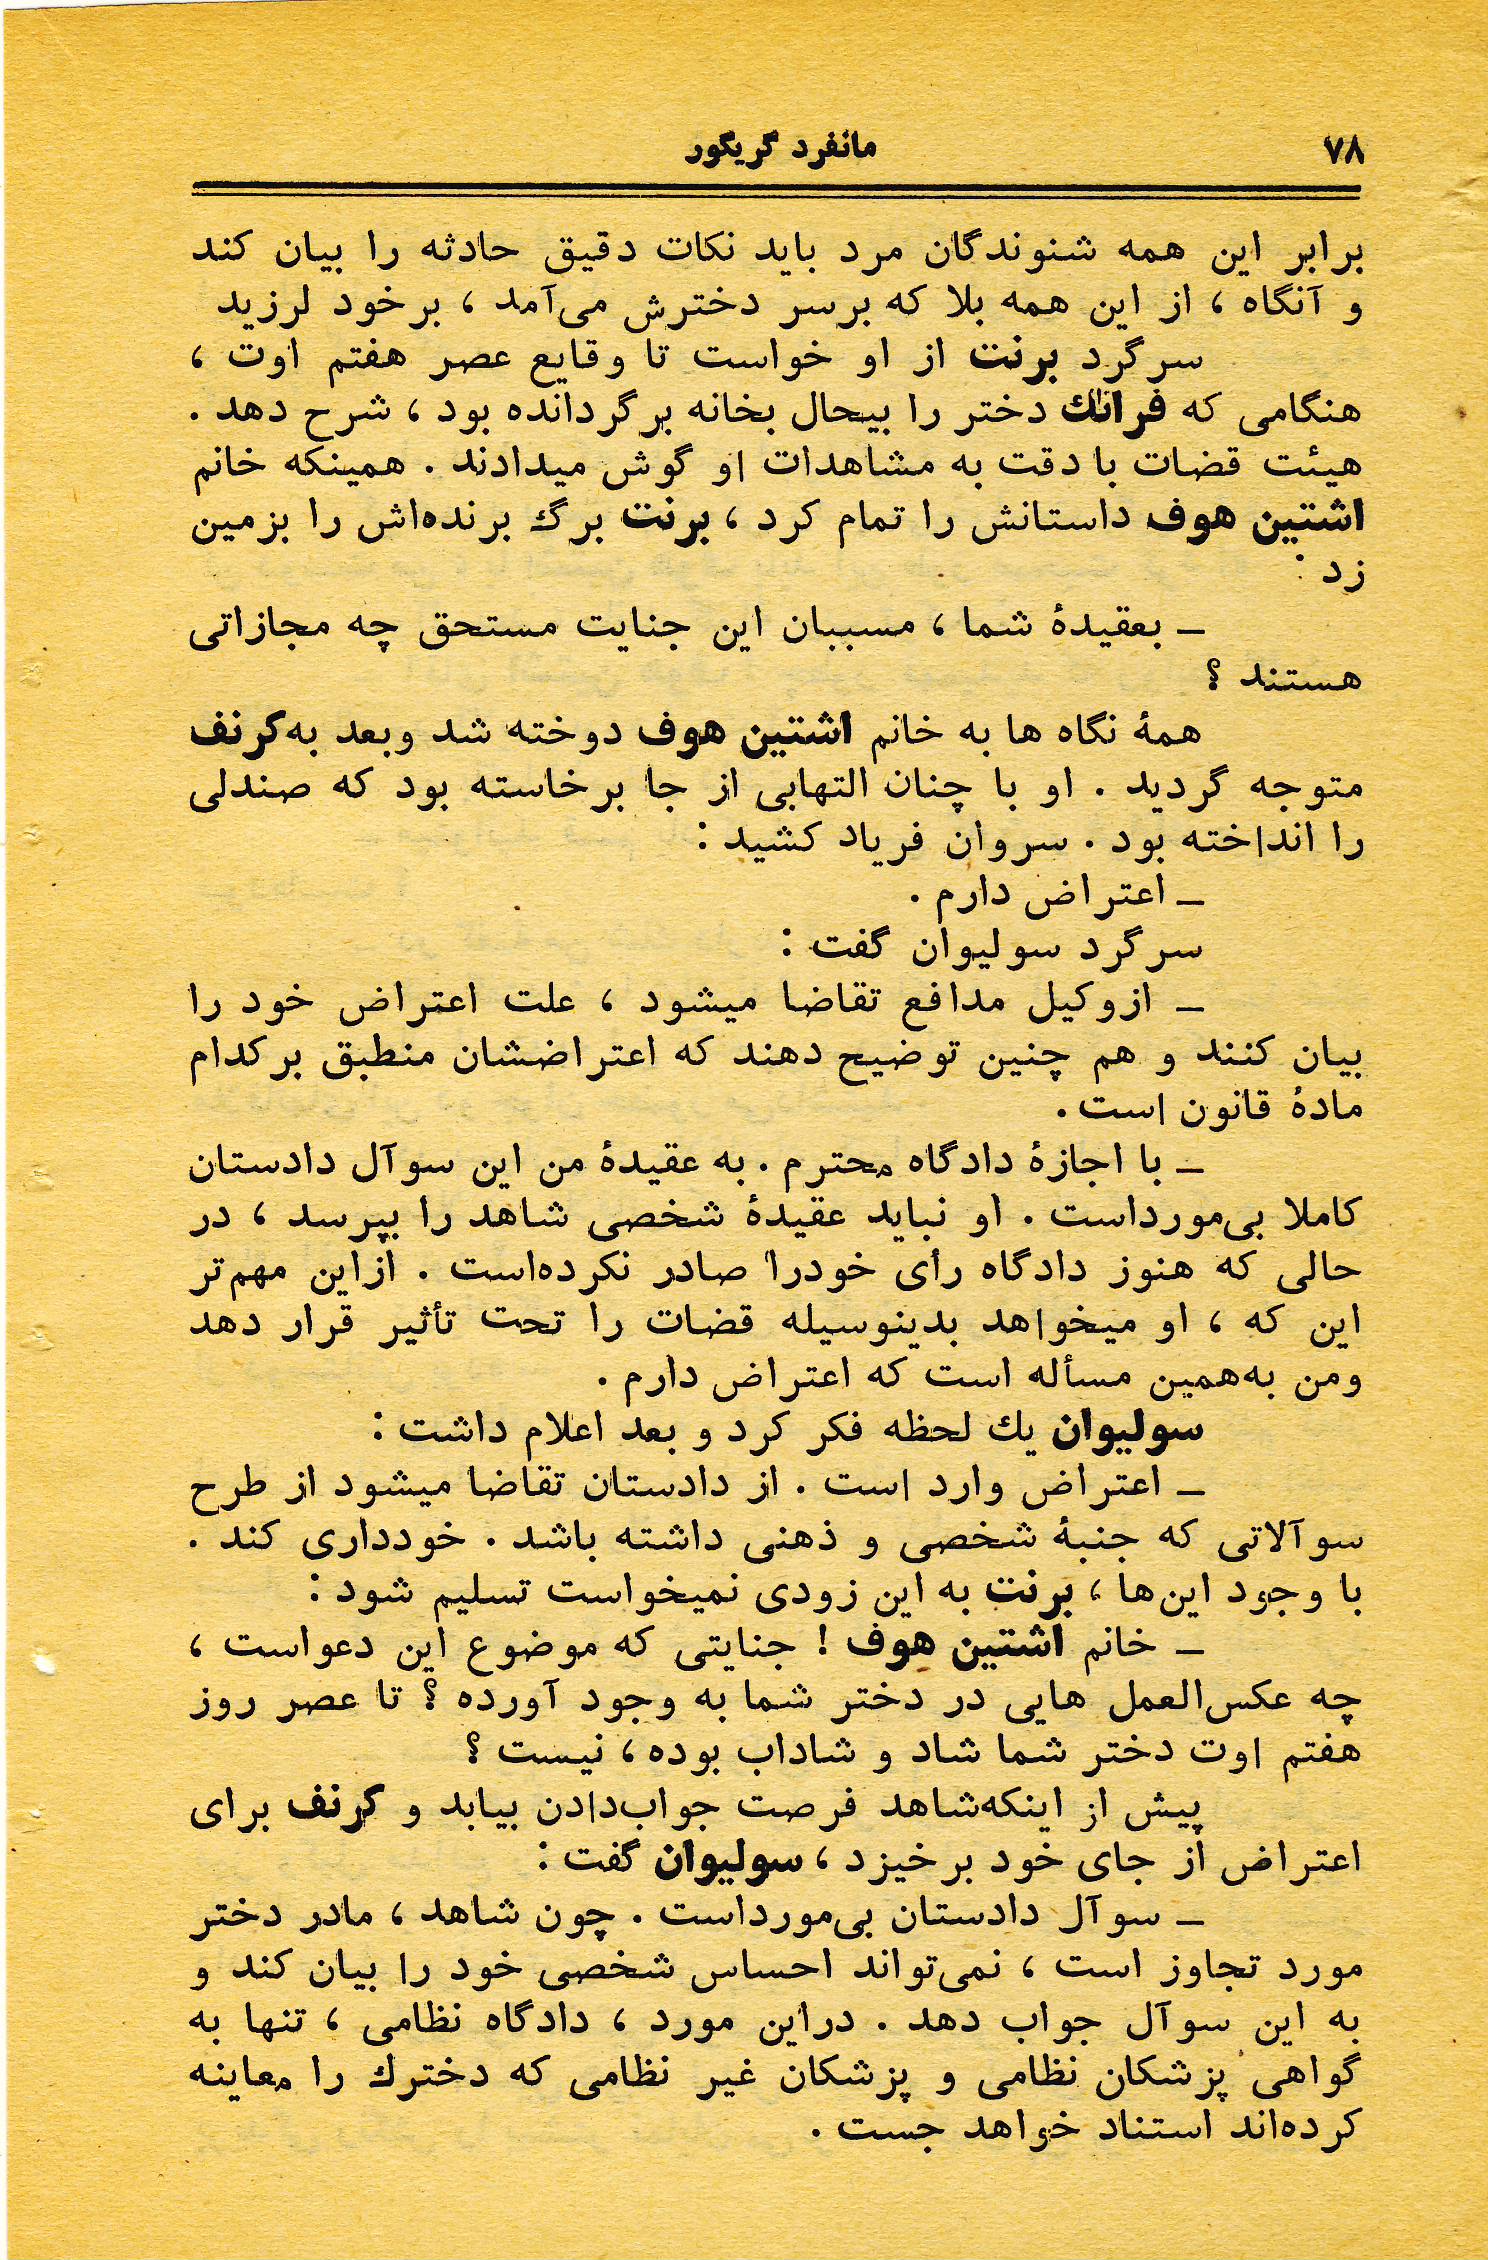 ۷۸
مانفرد گریگور
برابر این همه شنوندگان مرد باید نکات دقیق حادثه را بیان کند
و آنگاه ، از این همه بلا که برسر دخترش می‌آمد ، برخود لرزید
سرگرد برنت از او خواست تا وقایع عصر هفتم اوت ،
هنگامی که فرانك دختر را بیحال بخانه برگردانده بود ، شرح دهد .
هیئت قضات با دقت به مشاهدات او گوش میدادند . همینکه خانم
اشتین هوف داستانش را تمام کرد ، برنت برگ برنده‌اش را بزمین
زد :
ـ بعقیدهٔ شما ، مسببان این جنایت مستحق چه مجازاتی
هستند ؟
همهٔ نگاه ها به خانم اشتین هوف دوخته شد وبعد به‌کرنف
متوجه گردید . او با چنان التهابی از جا برخاسته بود که صندلی
را انداخته بود . سروان فریاد کشید :
ـ اعتراض دارم .
سرگرد سولیوان گفت :
ـ ازوکیل مدافع تقاضا میشود ، علت اعتراض خود را
بیان کنند و هم چنین توضیح دهند که اعتراضشان منطبق برکدام
مادهٔ قانون است .
ـ با اجازهٔ دادگاه محترم . به عقیدهٔ من این سوآل دادستان
کاملا بی‌مورداست . او نباید عقیدهٔ شخصی شاهد را بپرسد ، در
حالی که هنوز دادگاه رأی خودرا صادر نکرده‌است . ازاین مهم‌تر
این که ، او میخواهد بدینوسیله قضات را تحت تأثیر قرار دهد
ومن به‌همین مسأله است که اعتراض دارم .
سولیوان یك لحظه فکر کرد و بعد اعلام داشت :
ـ اعتراض وارد است . از دادستان تقاضا میشود از طرح
سوآلاتی که جنبهٔ شخصی و ذهنی داشته باشد . خودداری کند .
با وجود این‌ها ، برنت به این زودی نمیخواست تسلیم شود :
ـ خانم اشتین هوف ! جنایتی که موضوع این دعواست ،
چه عکس‌العمل هایی در دختر شما به وجود آورده ؟ تا عصر روز
هفتم اوت دختر شما شاد و شاداب بوده ، نیست ؟
پیش از اینکه‌شاهد فرصت جواب‌دادن بیابد و کرنف برای
اعتراض از جای خود برخیزد ، سولیوان گفت :
ـ سوآل دادستان بی‌مورداست . چون شاهد ، مادر دختر
مورد تجاوز است ، نمی‌تواند احساس شخصی خود را بیان کند و
به این سوآل جواب دهد . دراین مورد ، دادگاه نظامی ، تنها به
گواهی پزشکان نظامی و پزشکان غیر نظامی که دخترك را معاینه
کرده‌اند استناد خواهد جست .